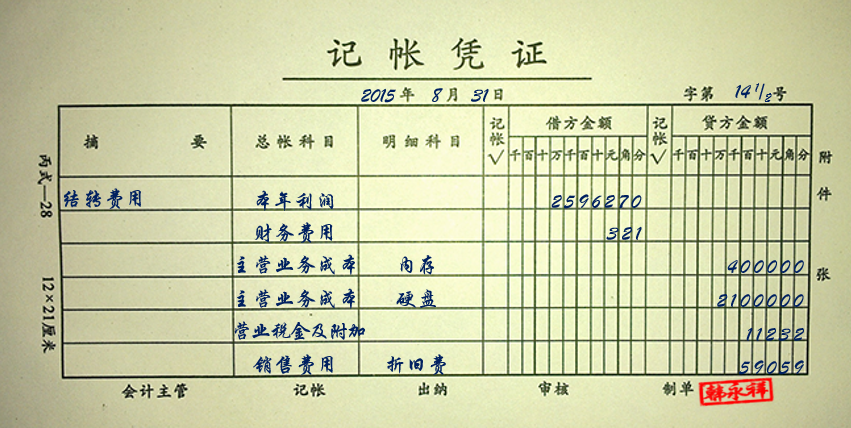 记帐凭证
2015年 8月 31日 字第 14 1/2号
摘 要 总帐科目 明细科目 记帐√ 借方金额 记帐√ 贷方金额
千百十万千百十元角分 千百十万千百十元角分
结转费用 本年利润 2596270
财务费用 321
主营业务成本 内存 400000
主营业务成本 硬盘 2100000
营业税金及附加 11232
销售费用 折旧费 59059
会计主管 记帐 出纳 审核 制单 韩永祥
附件 张
丙式—28 12×21厘米